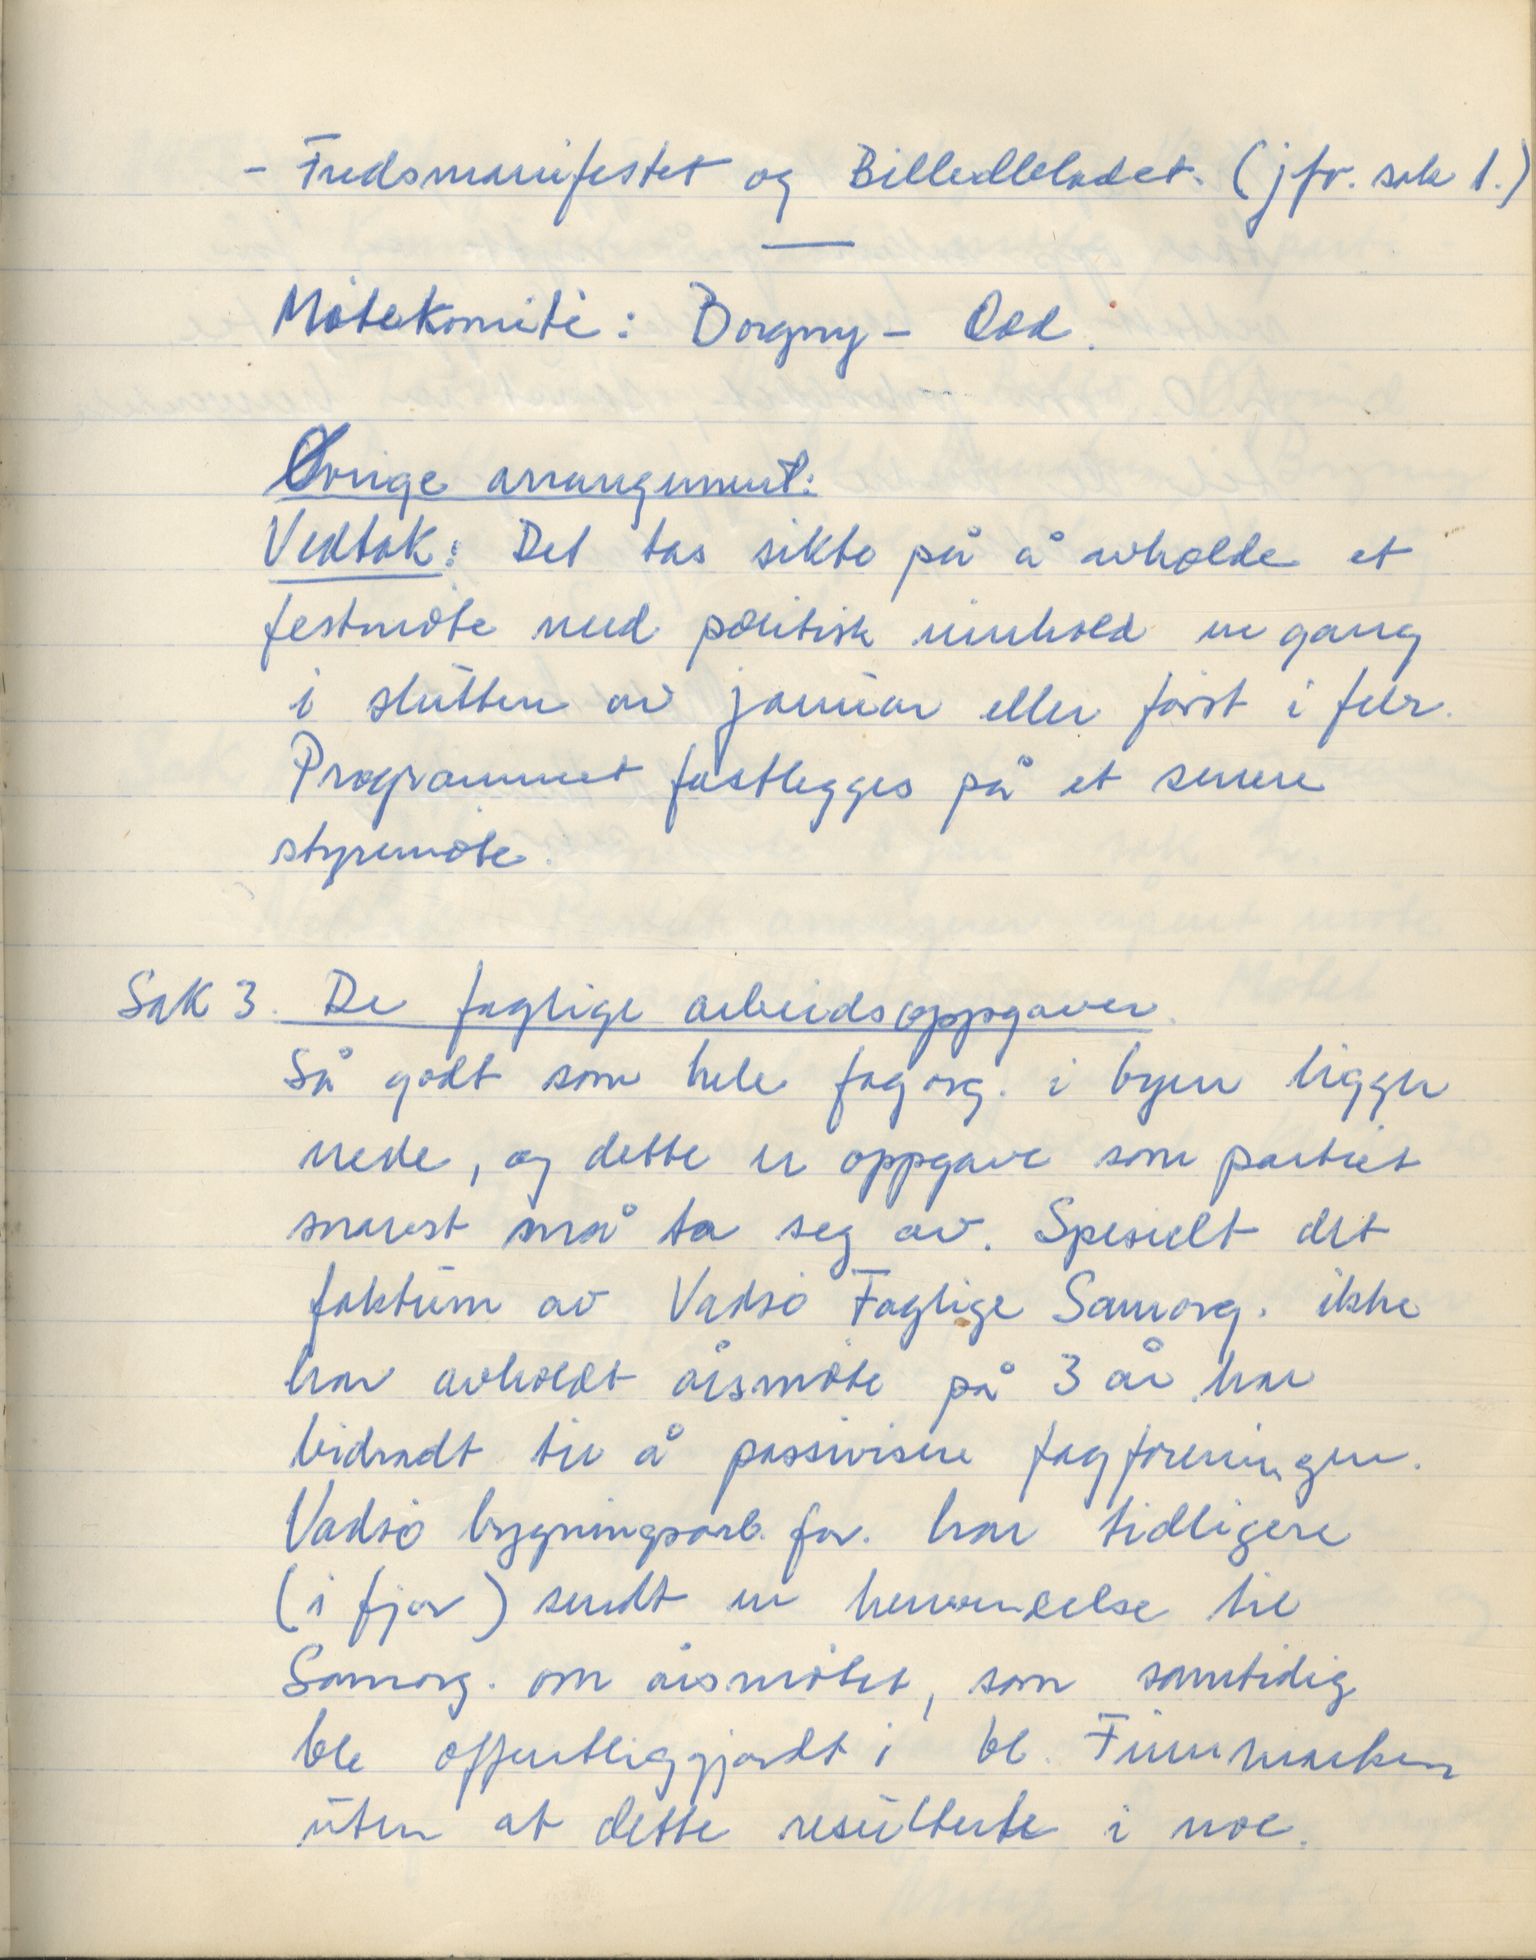 - Fredsmanifestet og Billedbladet. (jfr. sak 1.)
Møtekomité: Borgny - Odd.
Øvrige arrangement:
Vedtak: Det tas sikte på å avholde et
festmøte med politisk innhold en gang
i slutten av januar eller først i febr.
Programmet fastlegges på et senere
styremøte.
Sak 3. De faglige arbeidsoppgaver.
Så godt som hele fagorg. i byen ligger
nede, og dette er oppgave som partiet
snarest må ta seg av. Spesielt det
faktum av Vadsø Faglige Samorg. ikke
har avholdt årsmøte på 3 år har
bidradt til å passivisere fagforeningen.
Vadsø bygningsarb. for. har tidligere
(i fjor) sendt en henvendelse til
Samorg. om årsmøtet, som samtidig
ble offentliggjordt i bl. Finnmarken
uten at dette resulterte i noe.